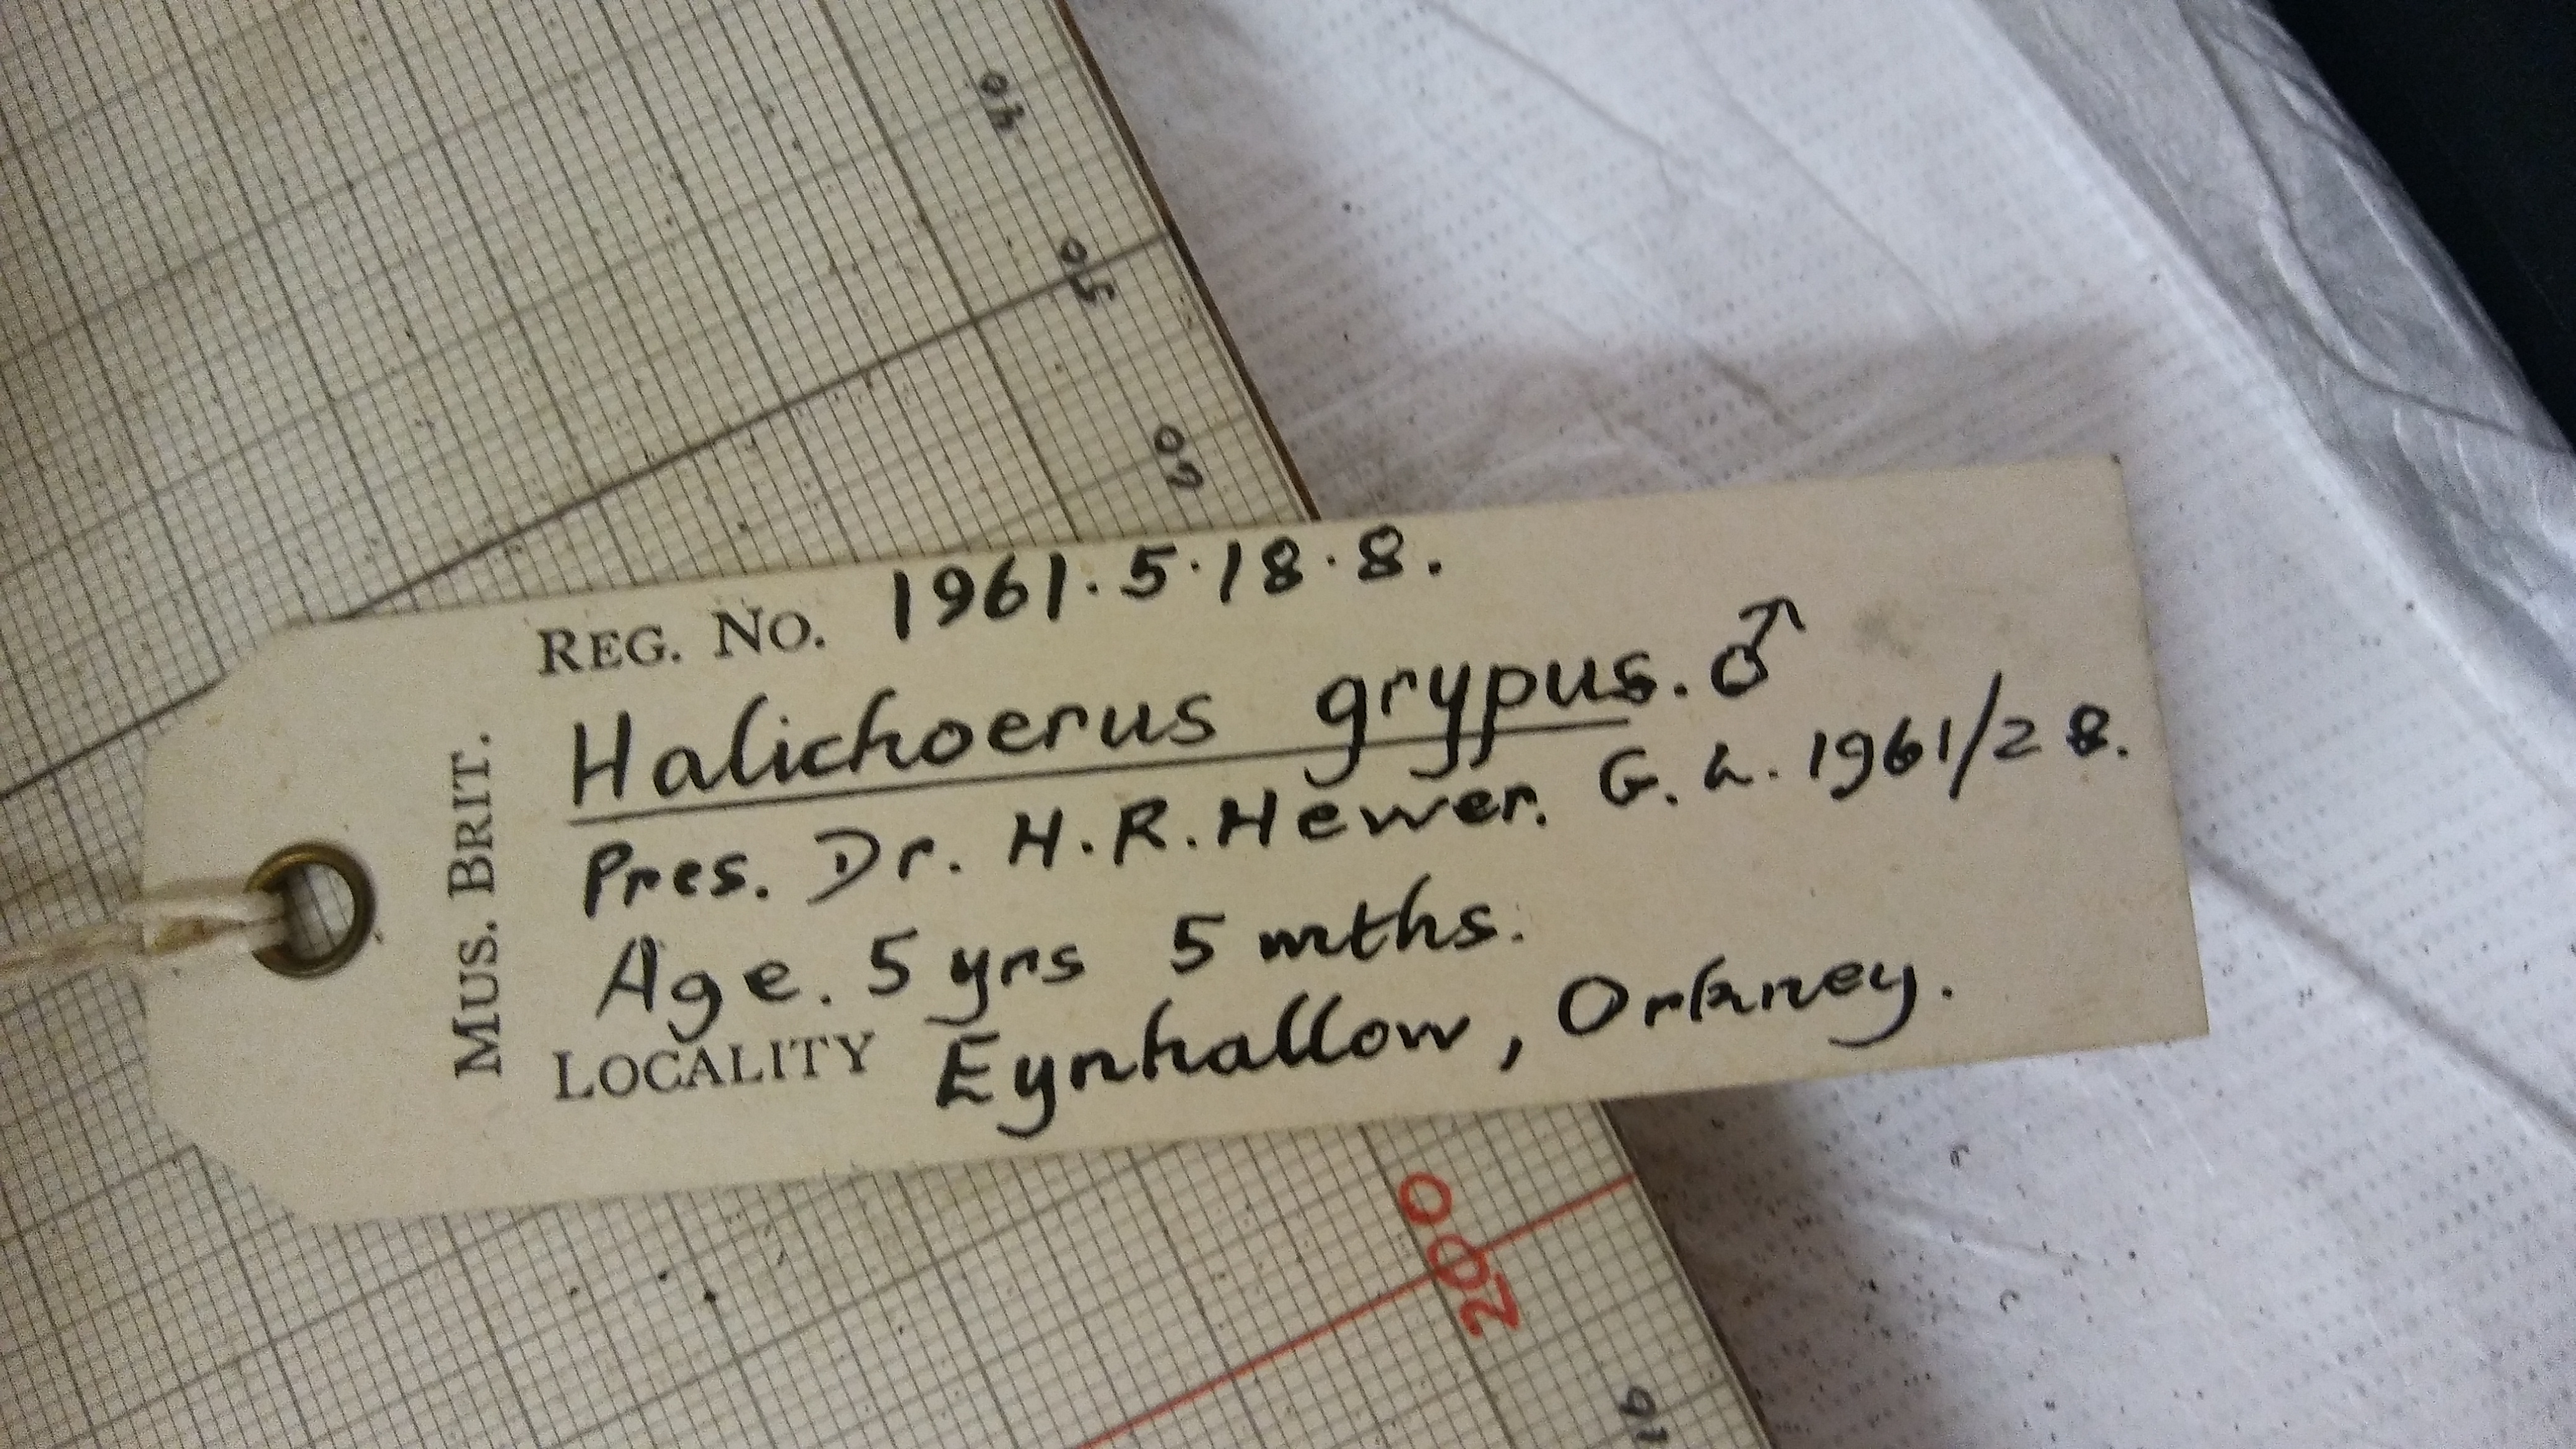 MUS. BRIT.
REG. NO. 1961.5.18.8.
Halichoerus grypus. ♂
Pres. Dr. H.R. Hewer. G.L. 1961/28.
Age. 5 yrs 5 mths.
LOCALITY Eynhallow, Orkney.
40
50
60
200